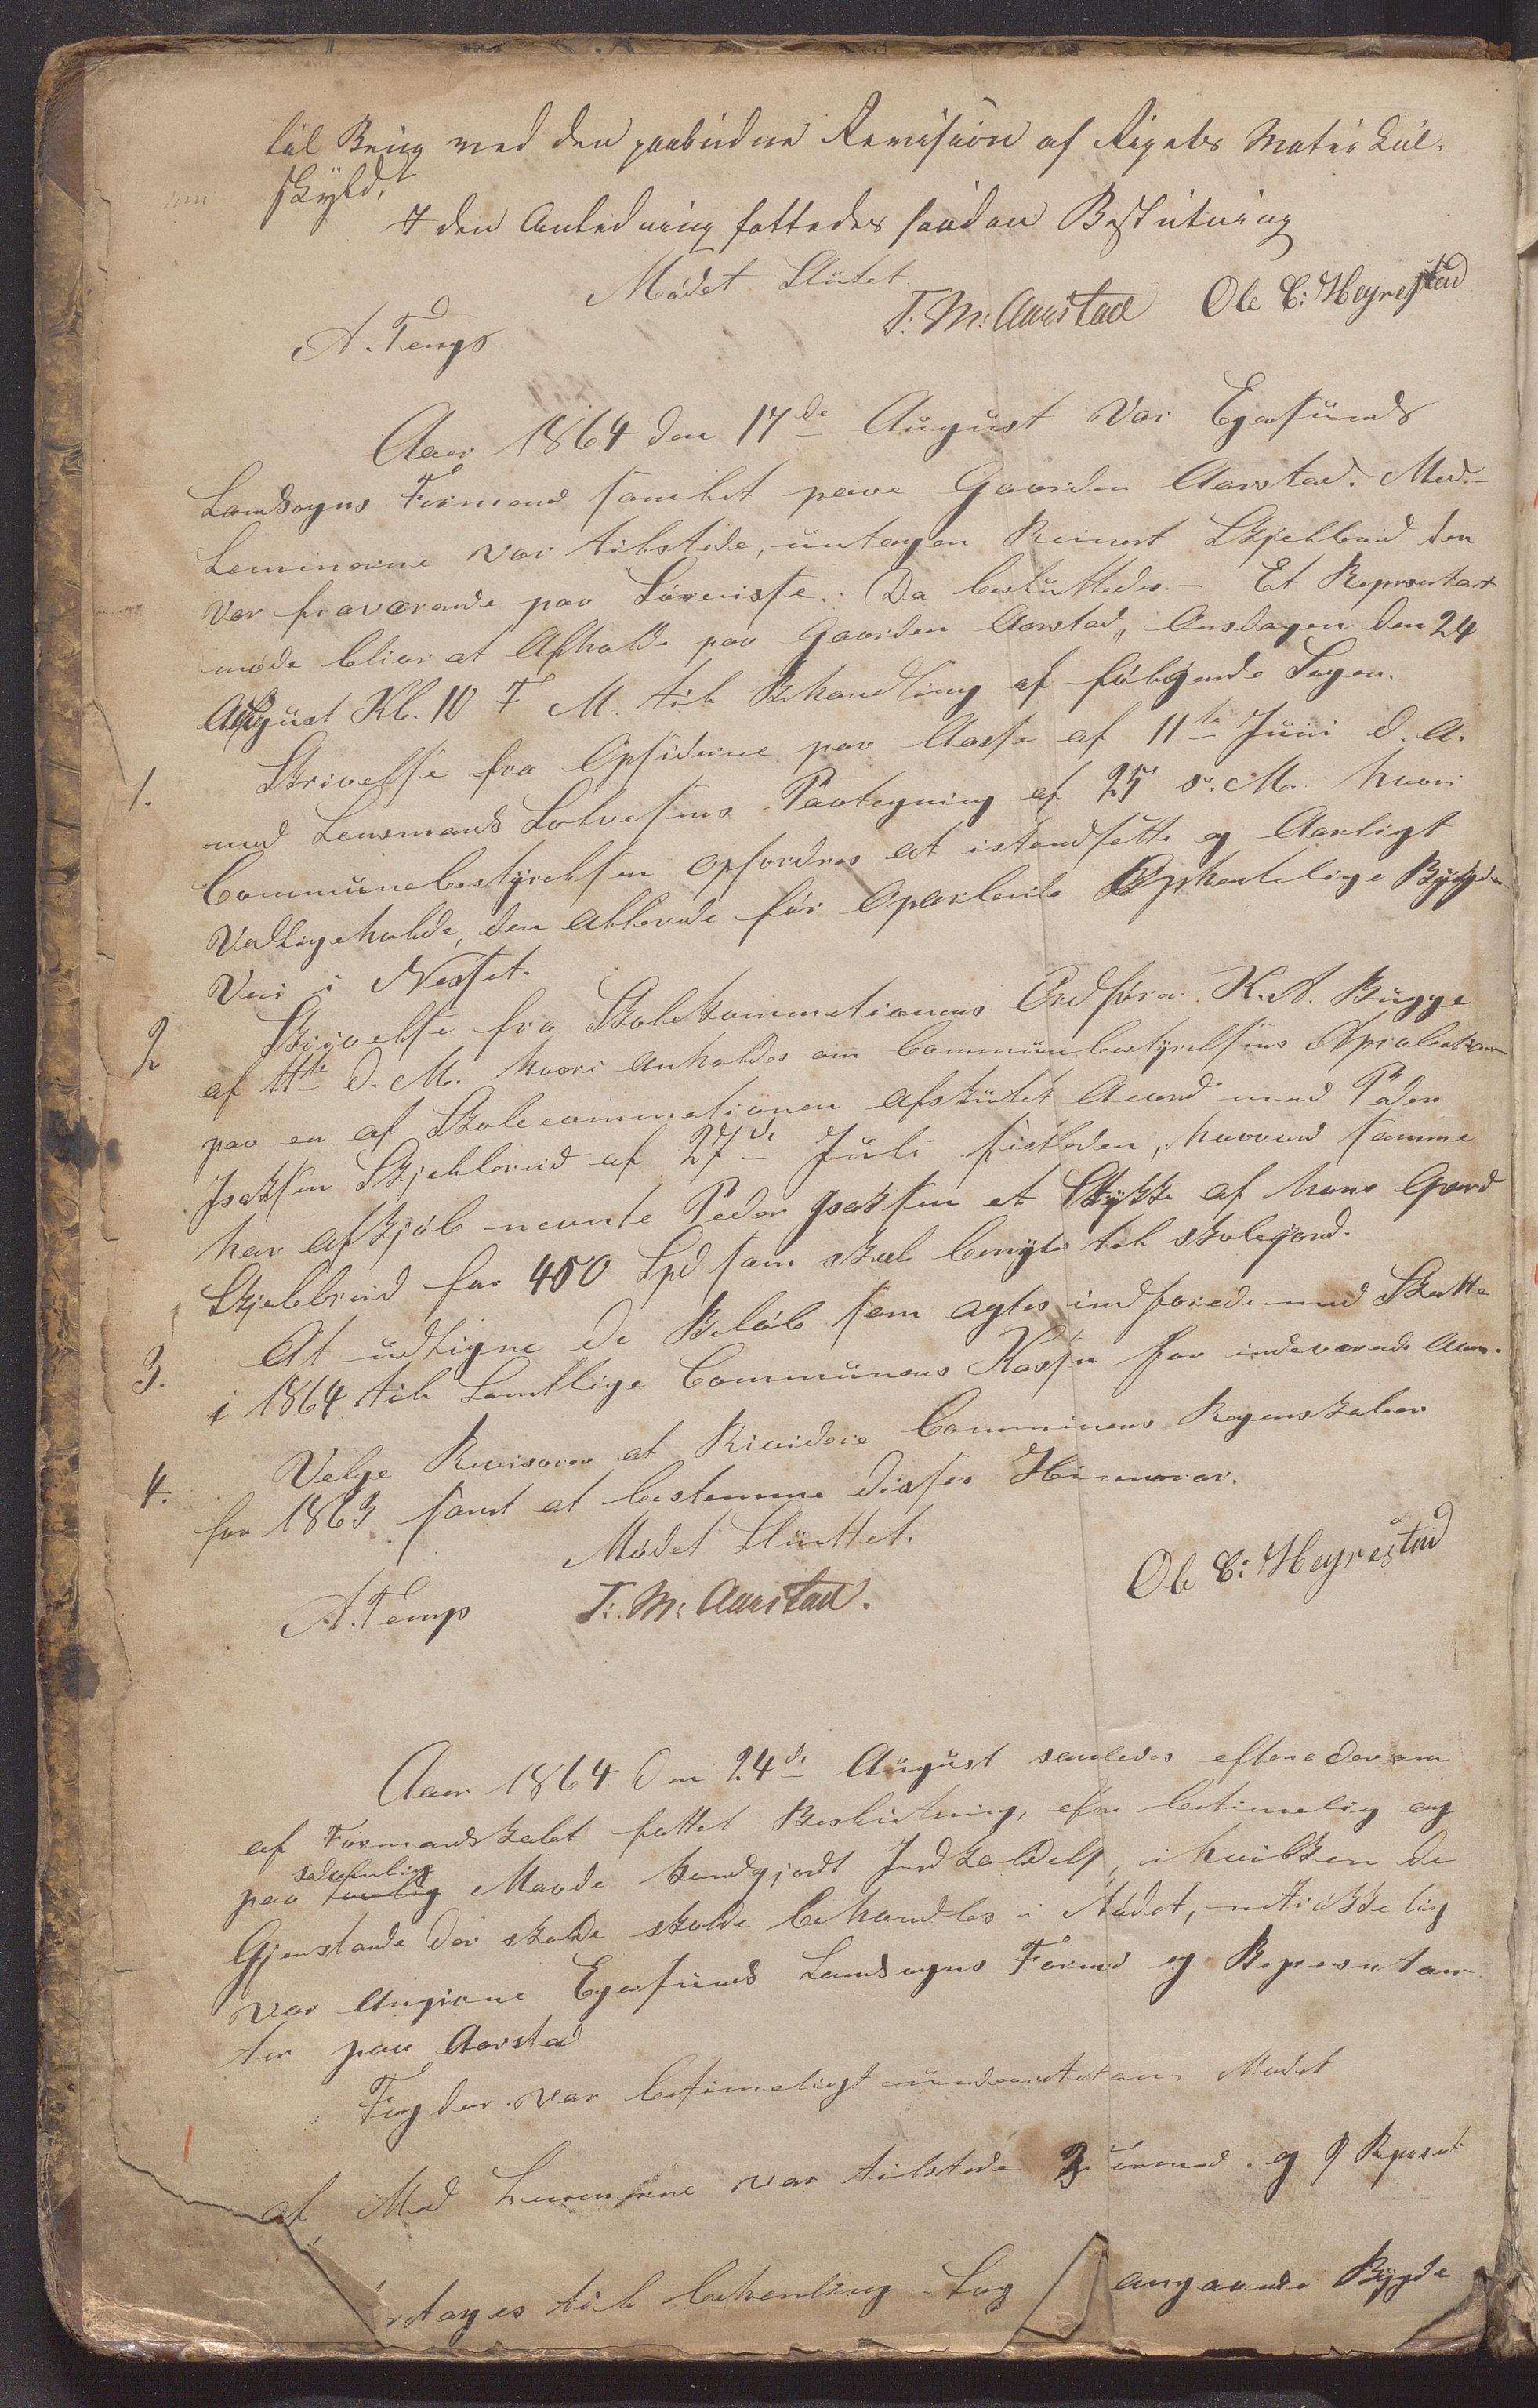 til Brug med den paabudne Revision af Rigets Matrikul.
skyld,
I den Anledning fattedes saadan Beslutning
Mødet Slutet
A. Tengs T: M: Aarstad Ole C: Hegrestad
Aar 1864 den 17de August Var Egersunds
Landsogns Formend samlet paae Gaarden Aarstad. Med-
Lemmerne var tilstede, untagen Reinert Skjelbred den
var fraværende paa Søreise. Da besluttedes.- Et Reprsentant
møde bliver at Afholde paa Gaarden Aarstad, Onsdagen den 24
August Kl. 10 F M. til Behandling af følgende Sager.
1. Skrivelse fra Opsiderne paa Aase af 11te Juni d. A.
med Lensmand Salvesens Paategning af 25 s. M. hvori
Communebestyrelsen opfordres at istandsette og Aarligt
Vedligeholde, den allerede før oparbeide Bygde
Vei i Nesset.
2 Skrivelse fra Skolekommetionens Ordfører K. A. Bugge
af 11te d. M. hvori anholdes om Communbestyrelsens Aprobation
paa en af Skolecommetionen afsluttet Acord med Peder
Isaksen Skjelbreid af 27de Juli sistleden, hvorved samme
har afkjøb nevnte Peder Isaksen et Stykke af hans Gaard
Skjelbreid for 450 Spd som skal benytes til skolejord.
3. At udligne de Beløb som agtes indforede med Skatte
i 1864 til Samtlige Communens Kasser for indeværende Aar.
4. Velge Revisorer at Revidere Communens Regenskaber
for 1863 samt at bestemme disses Honnorar.
Mødet Sluttet.
A. Tengs T: M: Aarstad. Ole C: Hegrestad
Aar 1864 den 24de August samledes efter derom
af Formandskabet fattet Beslutning, efter betimelig og
sedvanlig
paa lovlig Maade kundgjordt Indkaldelse, i hvilken de
Gjenstande der skulde skulde behandles i Mødet,
var Angivne Egersunds Landsogns Formd og Represntan
ter paa Aarstad
Fogden var betimeligt underrettet om Mødet
af Med Lemmerne var tilstede 3 Formed. og 9 Reprsnt
retages til behenling Sag 1 angaaende Bygde